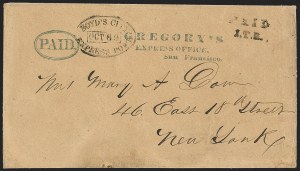 BOYD'S CITY
PAID
OCT 6
EXPRESS POST
GREGORY'S
EXPRESS OFFICE,
San Francisco.
PAID
J.T.B.
Mrs Mary A Dow
46 East 18th Street
New York